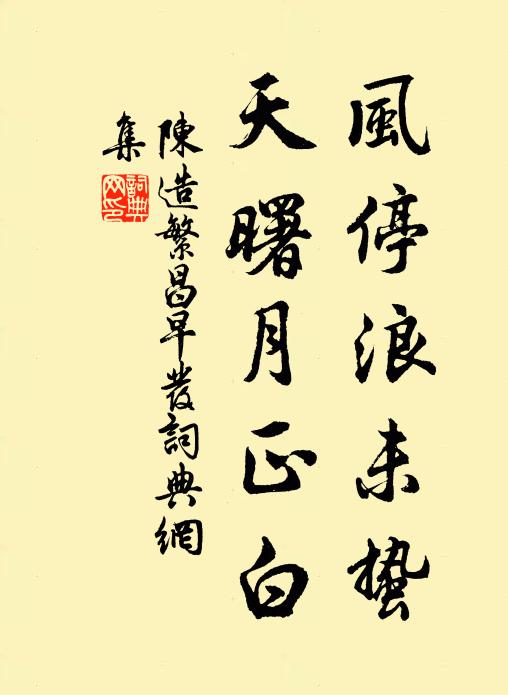 風停浪未蟄
天曙月正白
陳造繁昌早發詞典網
集
詞典網印